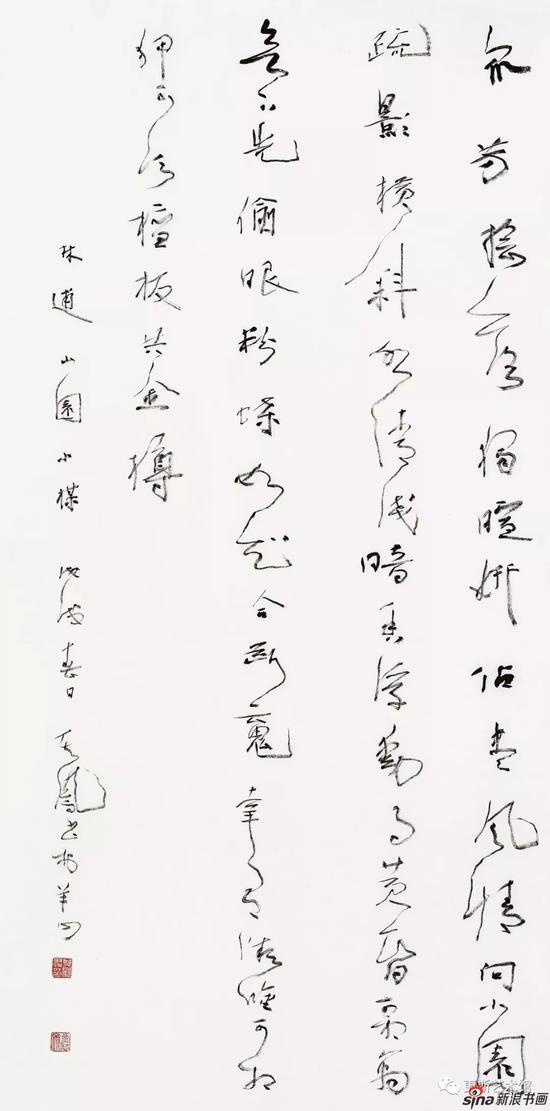 衆芳摇落獨暄妍佔尽風情向小園
疏影横斜水清浅暗香浮動月黄昏霜禽
欲下先偷眼粉蝶如知合断魂幸有微吟可相
狎不須檀板共金樽
林逋山園小楳 戊戌春日
艺术馆
sina新浪书画